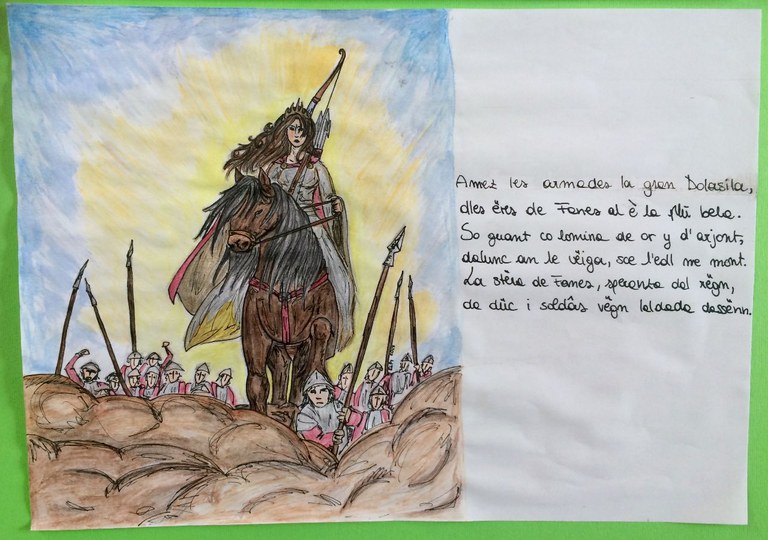 Amez les armades la gran Dolasila,
dles ëres de Fanes al è la plü bela.
So guant co lomina de or y d'arjont,
dalunc an le vëiga, sce l'edl me mont.
La stëra de Fanes, speranta dal rëgn,
da düc i soldâs vëgn laldada dassënn.